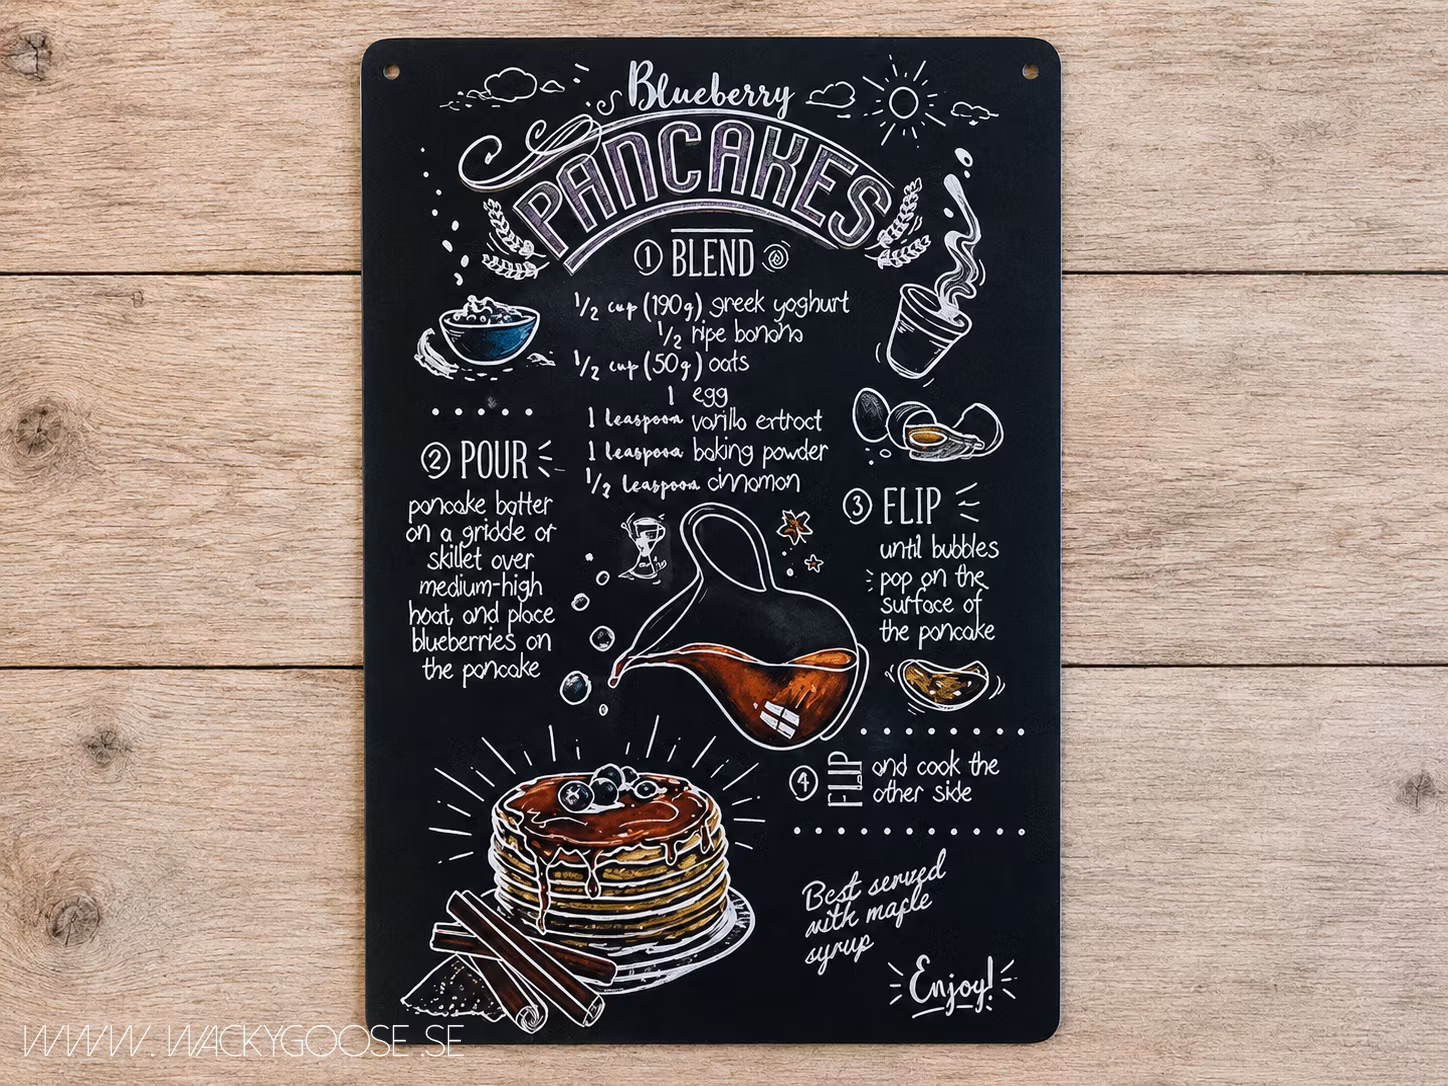 Blueberry
PANCAKES
1 BLEND
1/2 cup (190g) greek yoghurt
1/2 ripe banana
1/2 cup (50g) oats
1 egg
1 teaspoon vanilla extract
1 teaspoon baking powder
1/2 teaspoon cinnamon
2 POUR
pancake batter
on a gridde or
skillet over
medium-high
heat and place
blueberries on
the pancake
3 FLIP
until bubbles
pop on the
surface of
the pancake
4 FLIP and cook the
other side
Best served
with maple
syrup
Enjoy!
WWW.WACKYGOOSE.SE